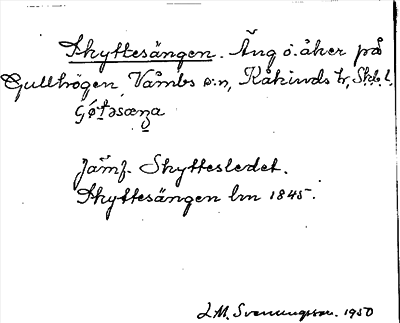 Skyttesängen. Äng o. åker på
Gullhögen, Våmbs s:n, Kåkinds hr, Skb. l.
Jämf. Skyttesledet.
Skyttesängen lm 1845.
L.M. Svenungsson. 1950